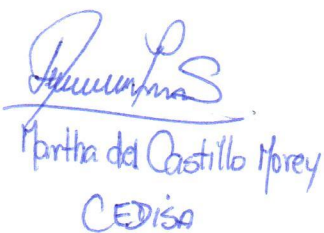 Martha del Castillo Morey
CEDISA